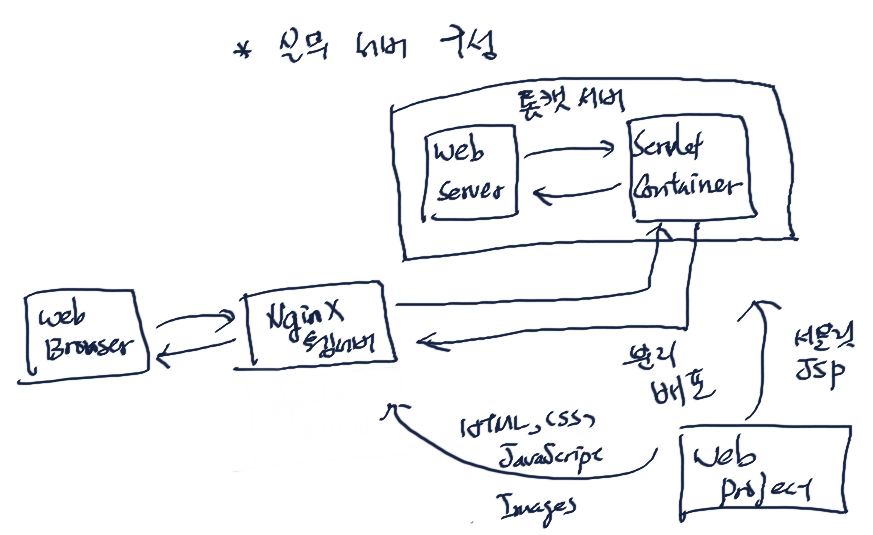 * 실무 서버 구성
톰캣 서버
Web
Server
Servlet
Container
Web
Browser
NginX
웹서버
분리
배포
서블릿
JSP
HTML, CSS,
JavaScript
Images
Web
project